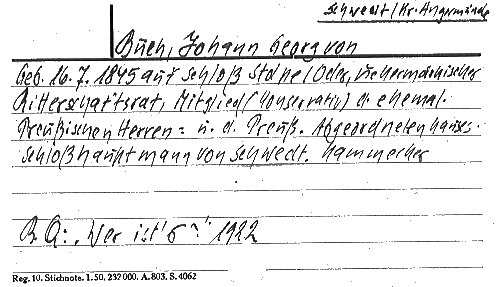 Schwedt/Kr. Angermünde
Buch, Johann Georg von
Geb. 16.7.1845 auf Schloß Stolpe/Oder, uckermärkischer
Ritterschaftsrat, Mitglied (Konservativ) d. ehemal.
Preußischen Herren= u. d. Preuß. Abgeordnetenhauses.
Schloßhauptmann von Schwedt. Kammerherr
B.Q.: "Wer ist's?" 1922
Reg. 10. Stichnote. 1. 50. 237 000. A. 803. S. 4062